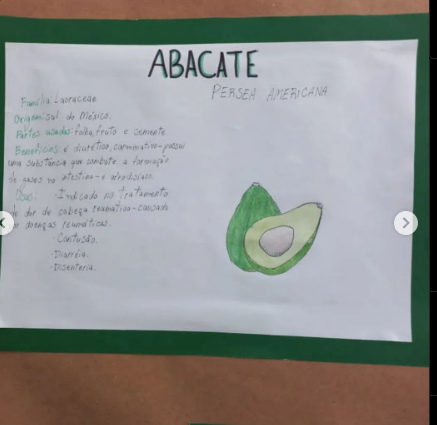 ABACATE
PERSEA AMERICANA
Família: Lauraceae
Origem: sal do México.
Partes usadas: folha, fruto e semente
Benefícios: é diurético, carminativo-possui
uma substância que combate a formação
de gases no intestino-e afrodisíaco.
Uso: Indicado no tratamento
de dor de cabeça reumático-causado
doenças reumáticas.
· Contusão.
· Diarréia.
· Disenteria.